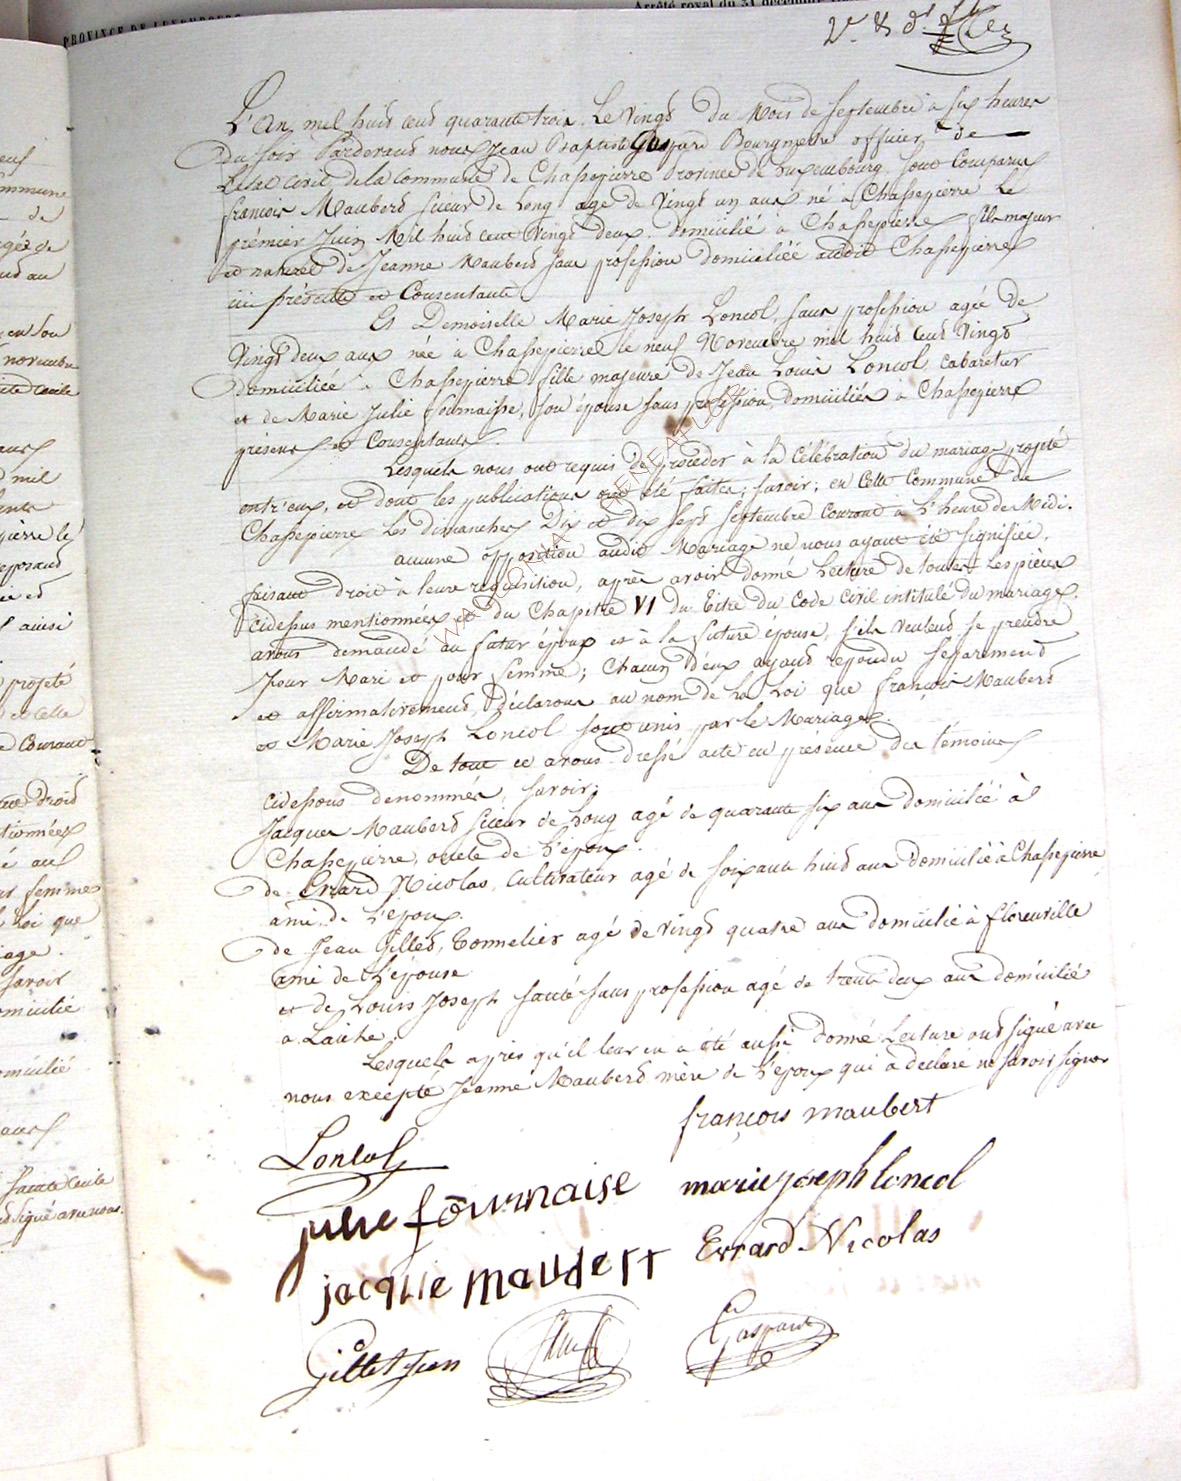 PROVINCE DE LUXEMBOURG
Arrêté royal du 31 décembre
L'An mil huit cent quarante trois le vingt du Mois de septembre à six heures
du soir Pardevant nous Jean Baptiste Gaspard Bourgmestre officier de
L'état civil de la Commune de Chassepierre Province de Luxembourg, sont Comparus
françois Maubert scieur de Long agé de vingt un ans né à Chassepierre Le
prémier Juin Mil huit cent vingt deux domicilié à Chassepierre fils majeur
et naturel de Jeanne Maubert sans profession domiciliée audit Chassepierre
ici présente et Consentante
Et Demoiselle Marie Joseph Loncol, sans profession agée de
vingt deux ans née à Chassepierre le neuf Novembre mil huit cent vingt
domiciliée à Chassepierre fille majeure de Jean Louis Loncol Cabaretier
et de Marie Julie fournaise, son épouse sans profession domiciliés à Chassepierre
présens et Consentants.
Lesquels nous ont requis de proceder à la célébration du mariage projeté
entr'eux, et dont les publications ont été faites; savoir; en Cette Commune de
Chassepierre les dimanches Dix et dix sept septembre Courant à l'heure de Midi.
aucune opposition audit Mariage ne nous ayant été signifiée,
faisant droit à leur requisition, après avoir donné Lecture de toutes Les pièces
cidessus mentionnées et du Chapitre VI du titre du Code Civil intitulé du mariage.
avons demandé au futur époux et à la future épouse, s'ils veulent se prendre
pour Mari et pour femme; chacun d'eux ayant repondu séparément
et affirmativement, Déclarons au nom de La Loi que françois Maubert
et Marie Joseph Loncol sont unis par le Mariage.
De tout ce avons dressé acte en présence des témoins
cidessous denommés, savoir;
Jacques Maubert scieur de Long agé de quarante six ans domicilié à
Chassepierre, oncle de l'époux.
de Erard Nicolas, Cultivateur agé de soixante huit ans domicilié à Chassepierre
ami de l'époux.
de Jean Gillet, Tonnelier agé de vingt quatre ans domicilié à florenville
ami de l'épouse
et de Louis Joseph sans profession agé de trente deux ans domicilié
a Laiche.
Lesquels après qu'il leur en a été aussi donné Lecture ont signé avec
nous excepté Jeanne Maubert mère de l'époux qui a déclaré ne savoir signer
françois maubert
Loncol
julie fournaise marie joseph loncol
jacque maubert Errard Nicolas
Gillet Jean
Gaspard
WAGIONNA GENEAFLUX